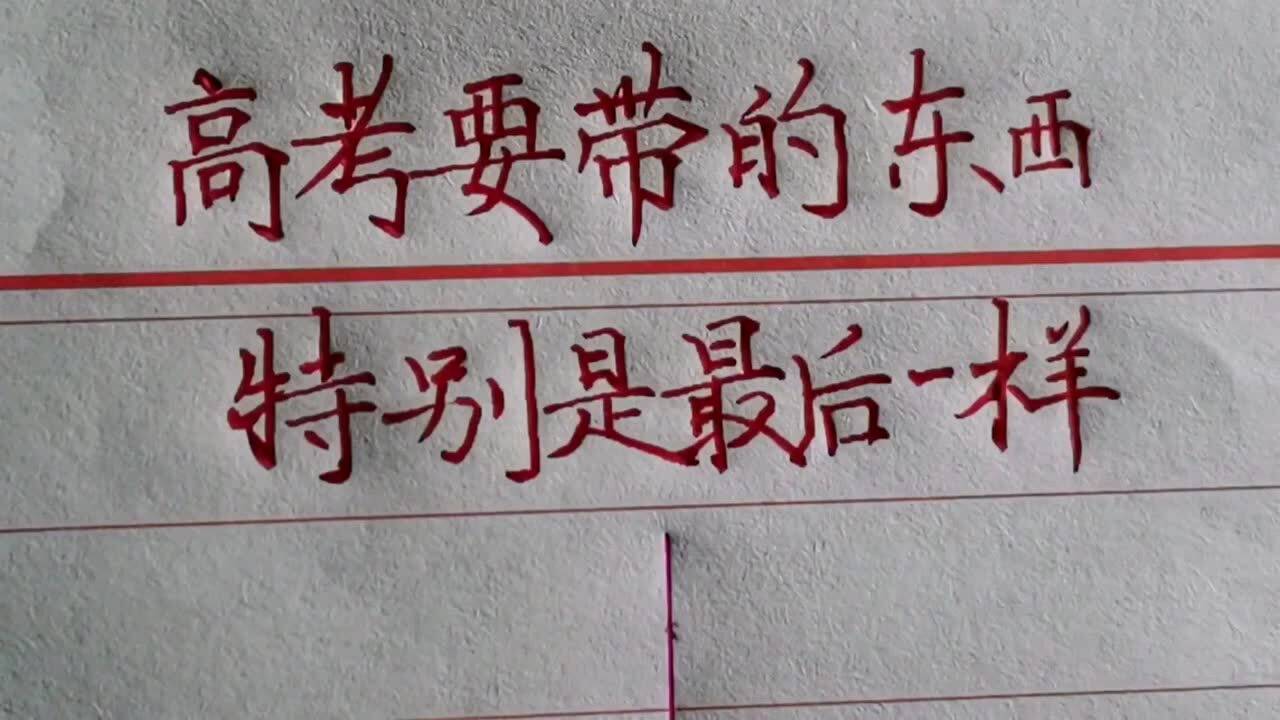 高考要带的东西
特别是最后一样